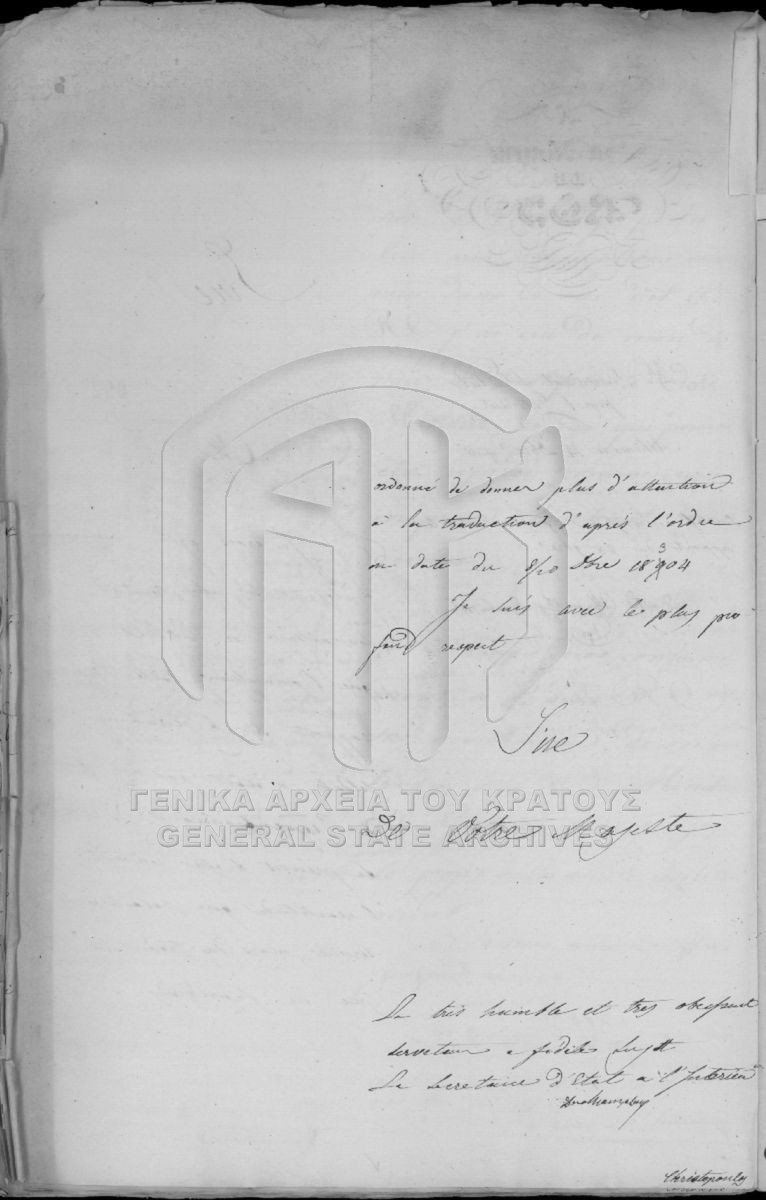 ordonné de donner plus d'attention
à la traduction d'après l'ordre
en date du 8/20 Xbre 18 3 904
Je suis avec le plus pro
fond respect
Sire
De Votre Majeste
ΓΕΝΙΚΑ ΑΡΧΕΙΑ ΤΟΥ ΚΡΑΤΟΥΣ
GENERAL STATE ARCHIVES
Le très humble et tres obeissant
serviteur e fidèle Sujet
Le Secretaire d'Etat a l'Interieur
Christopoulos